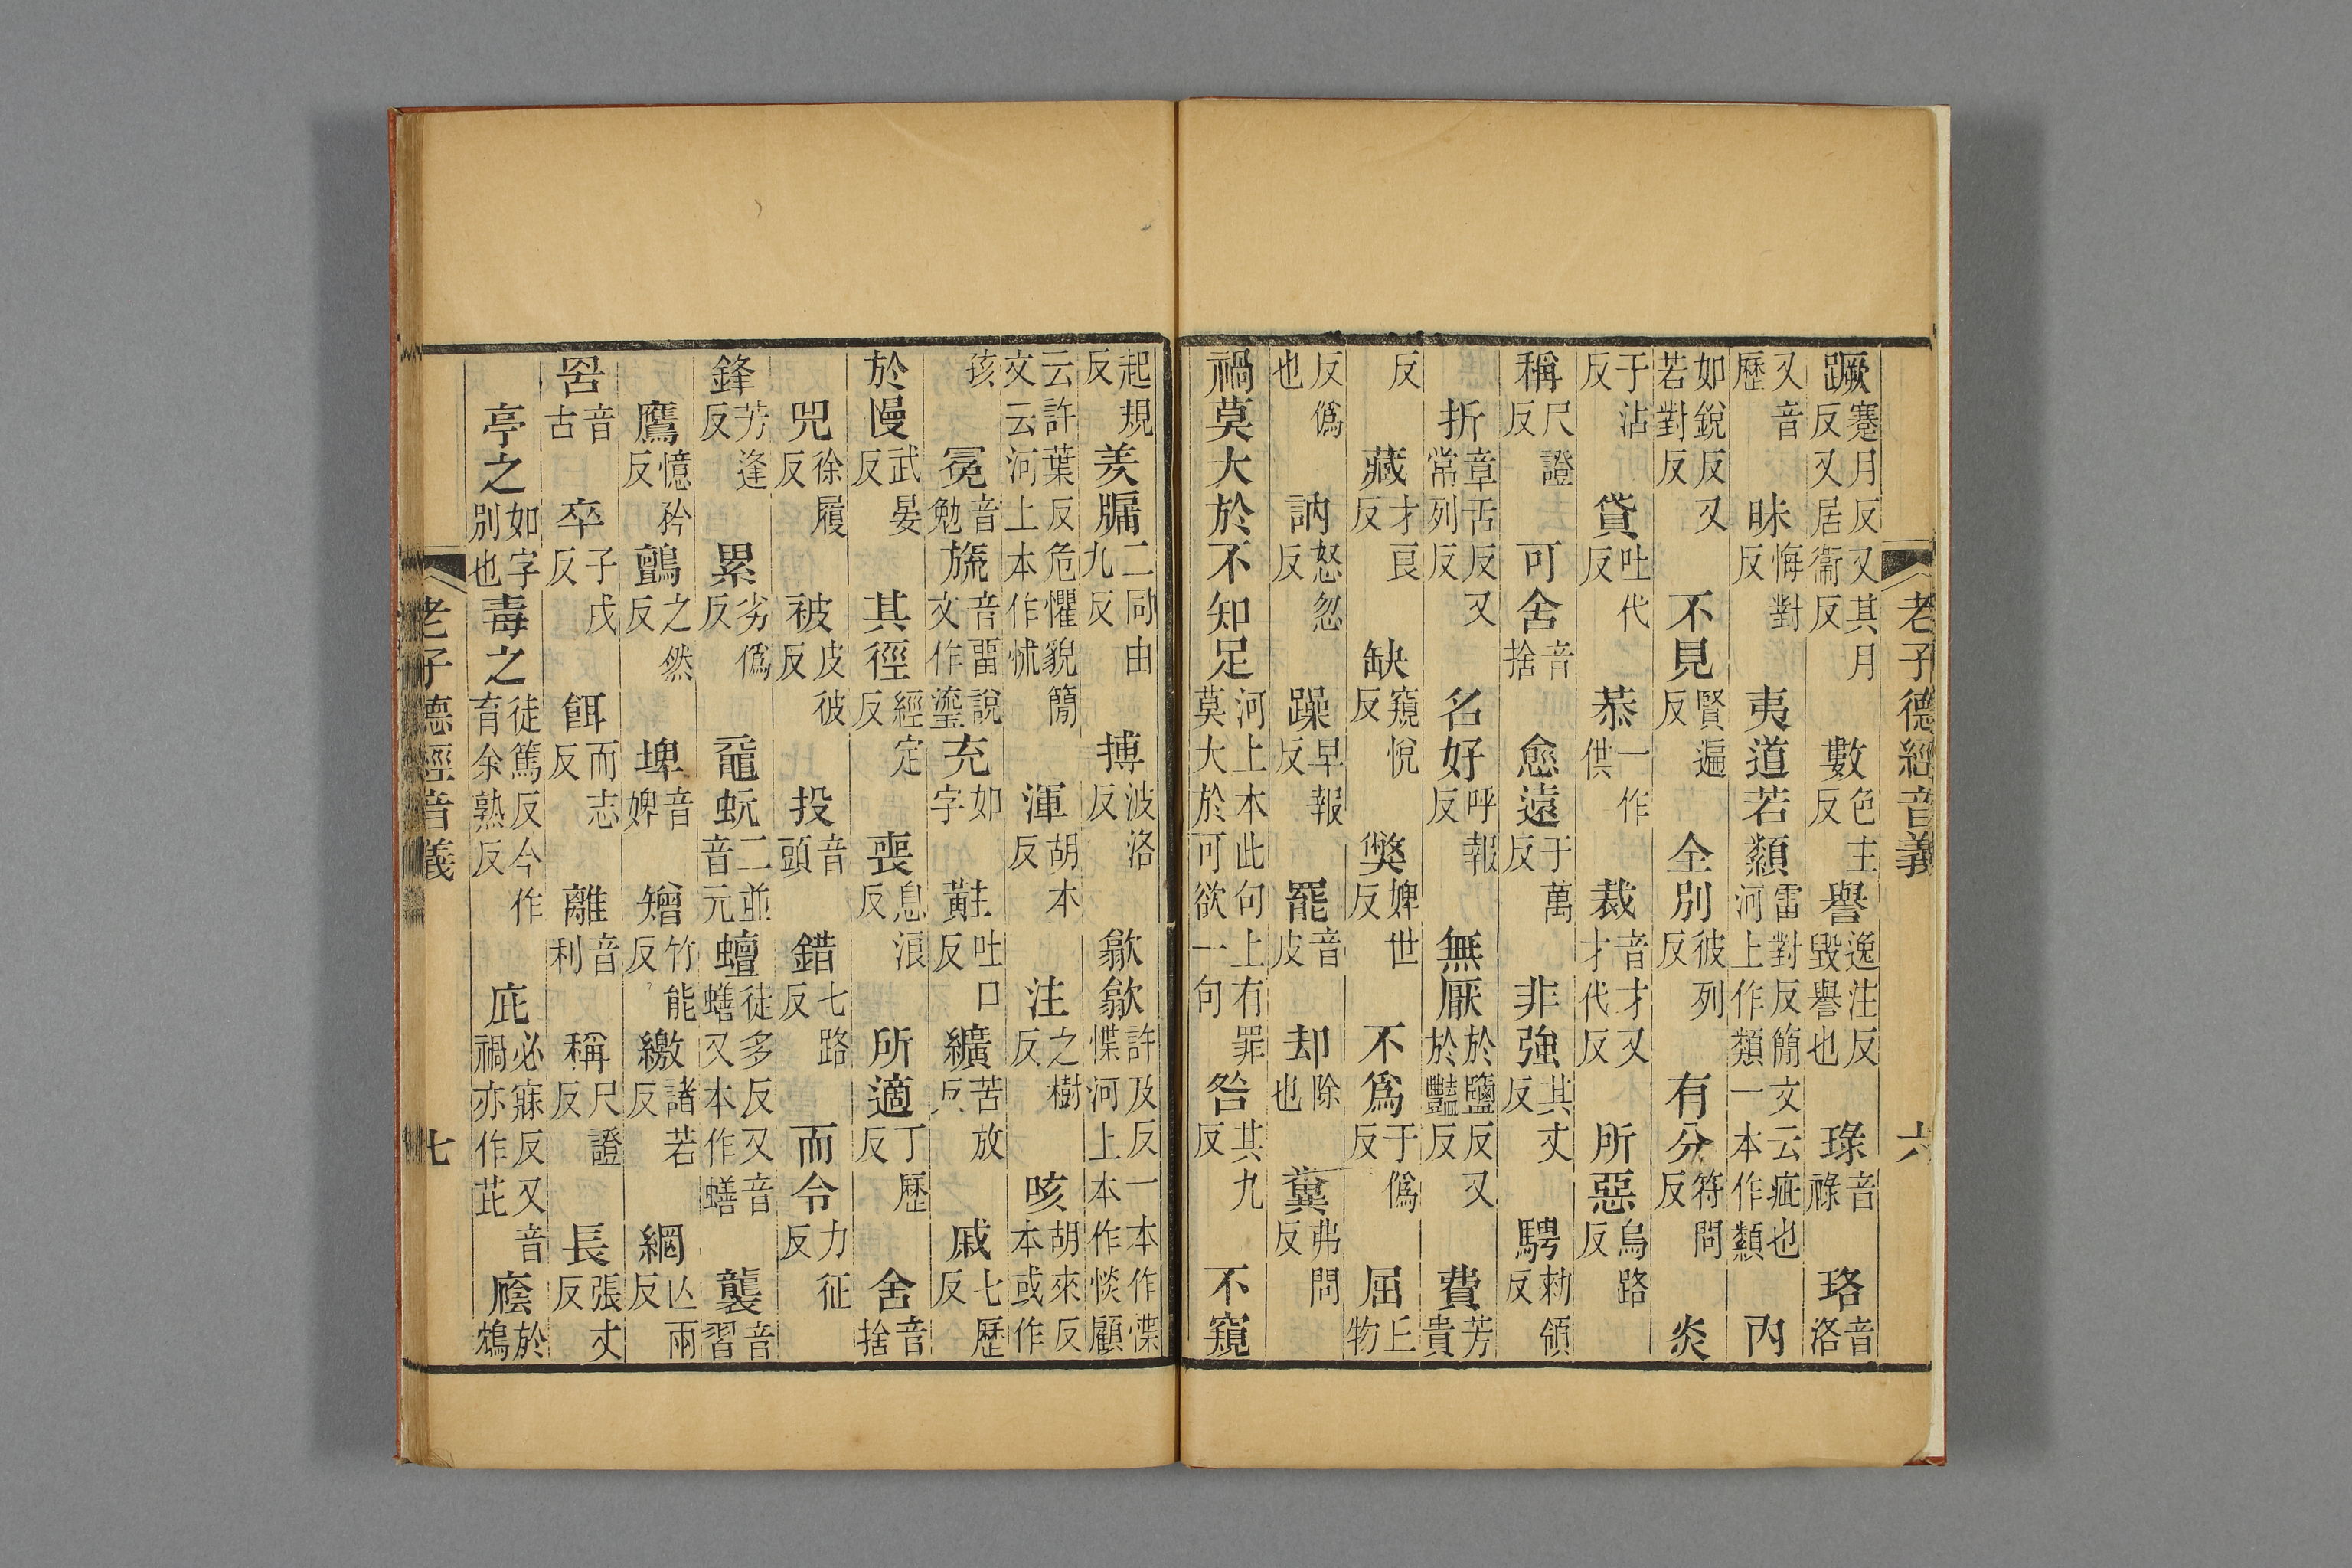 老子德經音義 六
蹶蹇月反又其月反又居衞反 數色主反 譽逸注反毀譽也 琭音祿 珞音洛
又音歷 昧悔對反 夷道若纇雷對反簡文云疵也河上作類一本作纇 內
如銳反又若對反 不見賢遍反 全別彼列反 有分符問反 炎
于沾反 貸吐代反 恭一作供 裁音才又才代反 所惡烏路反
稱尺證反 可舍音捨 愈遠于萬反 非強其丈反 騁勑領反
折章舌反又常列反 名好呼報反 無厭於鹽反又於豔反 費芳貴
反 藏才良反 缺窺悅反 獘婢世反 不爲于僞反 屈丘物
反僞也 訥怒忽反 躁早報反 罷音皮 却除也 糞弗問反
禍莫大於不知足河上本此句上有罪莫大於可欲一句 咎其九反 不窺
起規反 羑牖二同由九反 搏波洛反 歙歙許及反一本作惵惵河上本作惔顧
云許葉反危懼貌簡文云河上本作怵 渾胡本反 注之樹反 咳胡來反本或作
孩 冕音勉 旒音畱說文作瑬 充如字 黈吐口反 纊苦放反 戚七歷反
於慢武晏反 其徑經定反 喪息浪反 所適丁歷反 舍音捨
兕徐履反 被皮彼反 投音頭 錯七路反 而令力征反
鋒芳逢反 累劣僞反 黿蚖二並音元 蟺徒多反又音蟮又本作蟮 襲音習
鷹憶矜反 鸇之然反 埤音婢 矰竹能反 繳諸若反 網亾兩反
罟音古 卒子戌反 餌而志反 離音利 稱尺證反 長張丈反
亭之如字別也 毒之徒篤反今作育余熟反 庇必寐反又音禍亦作芘 廕於鴆
老子德經音義 七